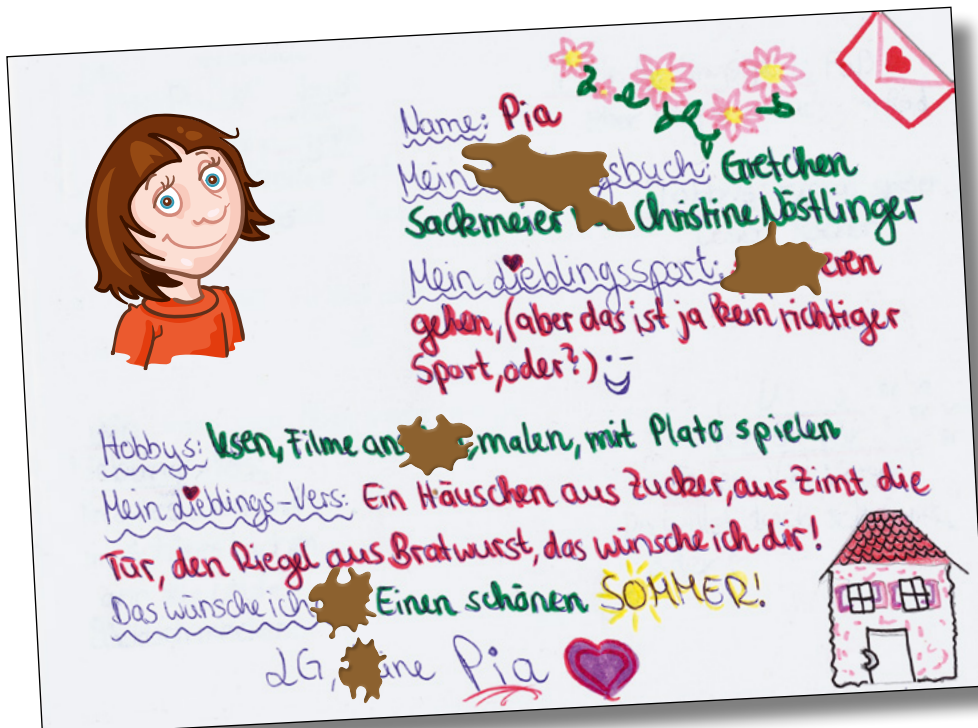 Name: Pia
Mein sbuch: Gretchen
Sackmeier Christine Nöstlinger
Mein Lieblingssport: eren
gehen, (aber das ist ja kein richtiger
Sport, oder?)
Hobbys: lesen, Filme an , malen, mit Plato spielen
Mein Lieblings-Vers: Ein Häuschen aus Zucker, aus Zimt die
Tür, den Riegel aus Bratwurst, das wünsche ich dir!
Das wünsche ich Einen schönen SOMMER!
LG, ine Pia